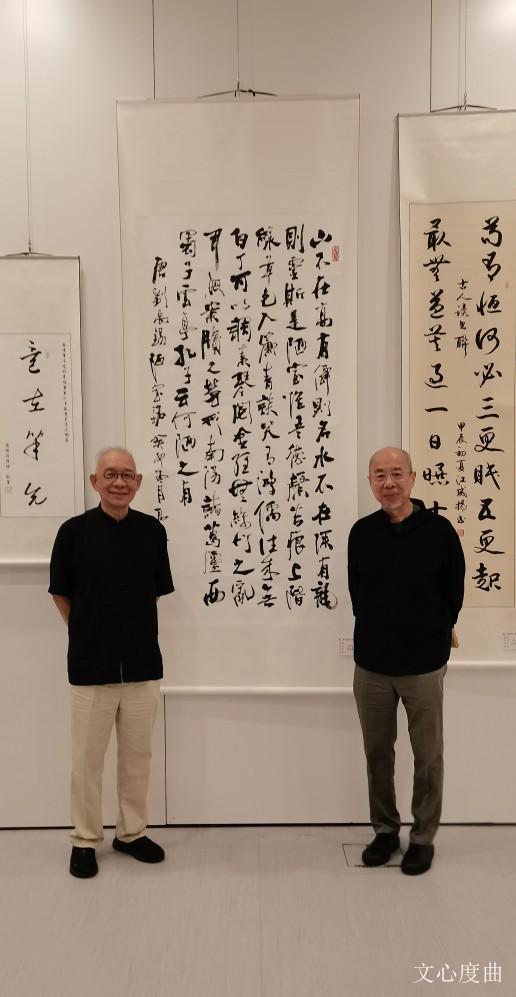 苟有恆何必三更眠五更起
古人讀書聯
最無益莫過一日曝十
甲辰初夏江
山不在高有僊則名水不在深有龍
則靈斯是陋室惟吾德馨苔痕上階
綠草色入簾青談笑有鴻儒往來無
白丁可以調素琴閱金經無絲竹之亂
耳無案牘之勞形南陽諸葛廬西
蜀子雲亭孔子云何陋之有
唐劉禹錫陋室銘
意在筆先
文心度曲